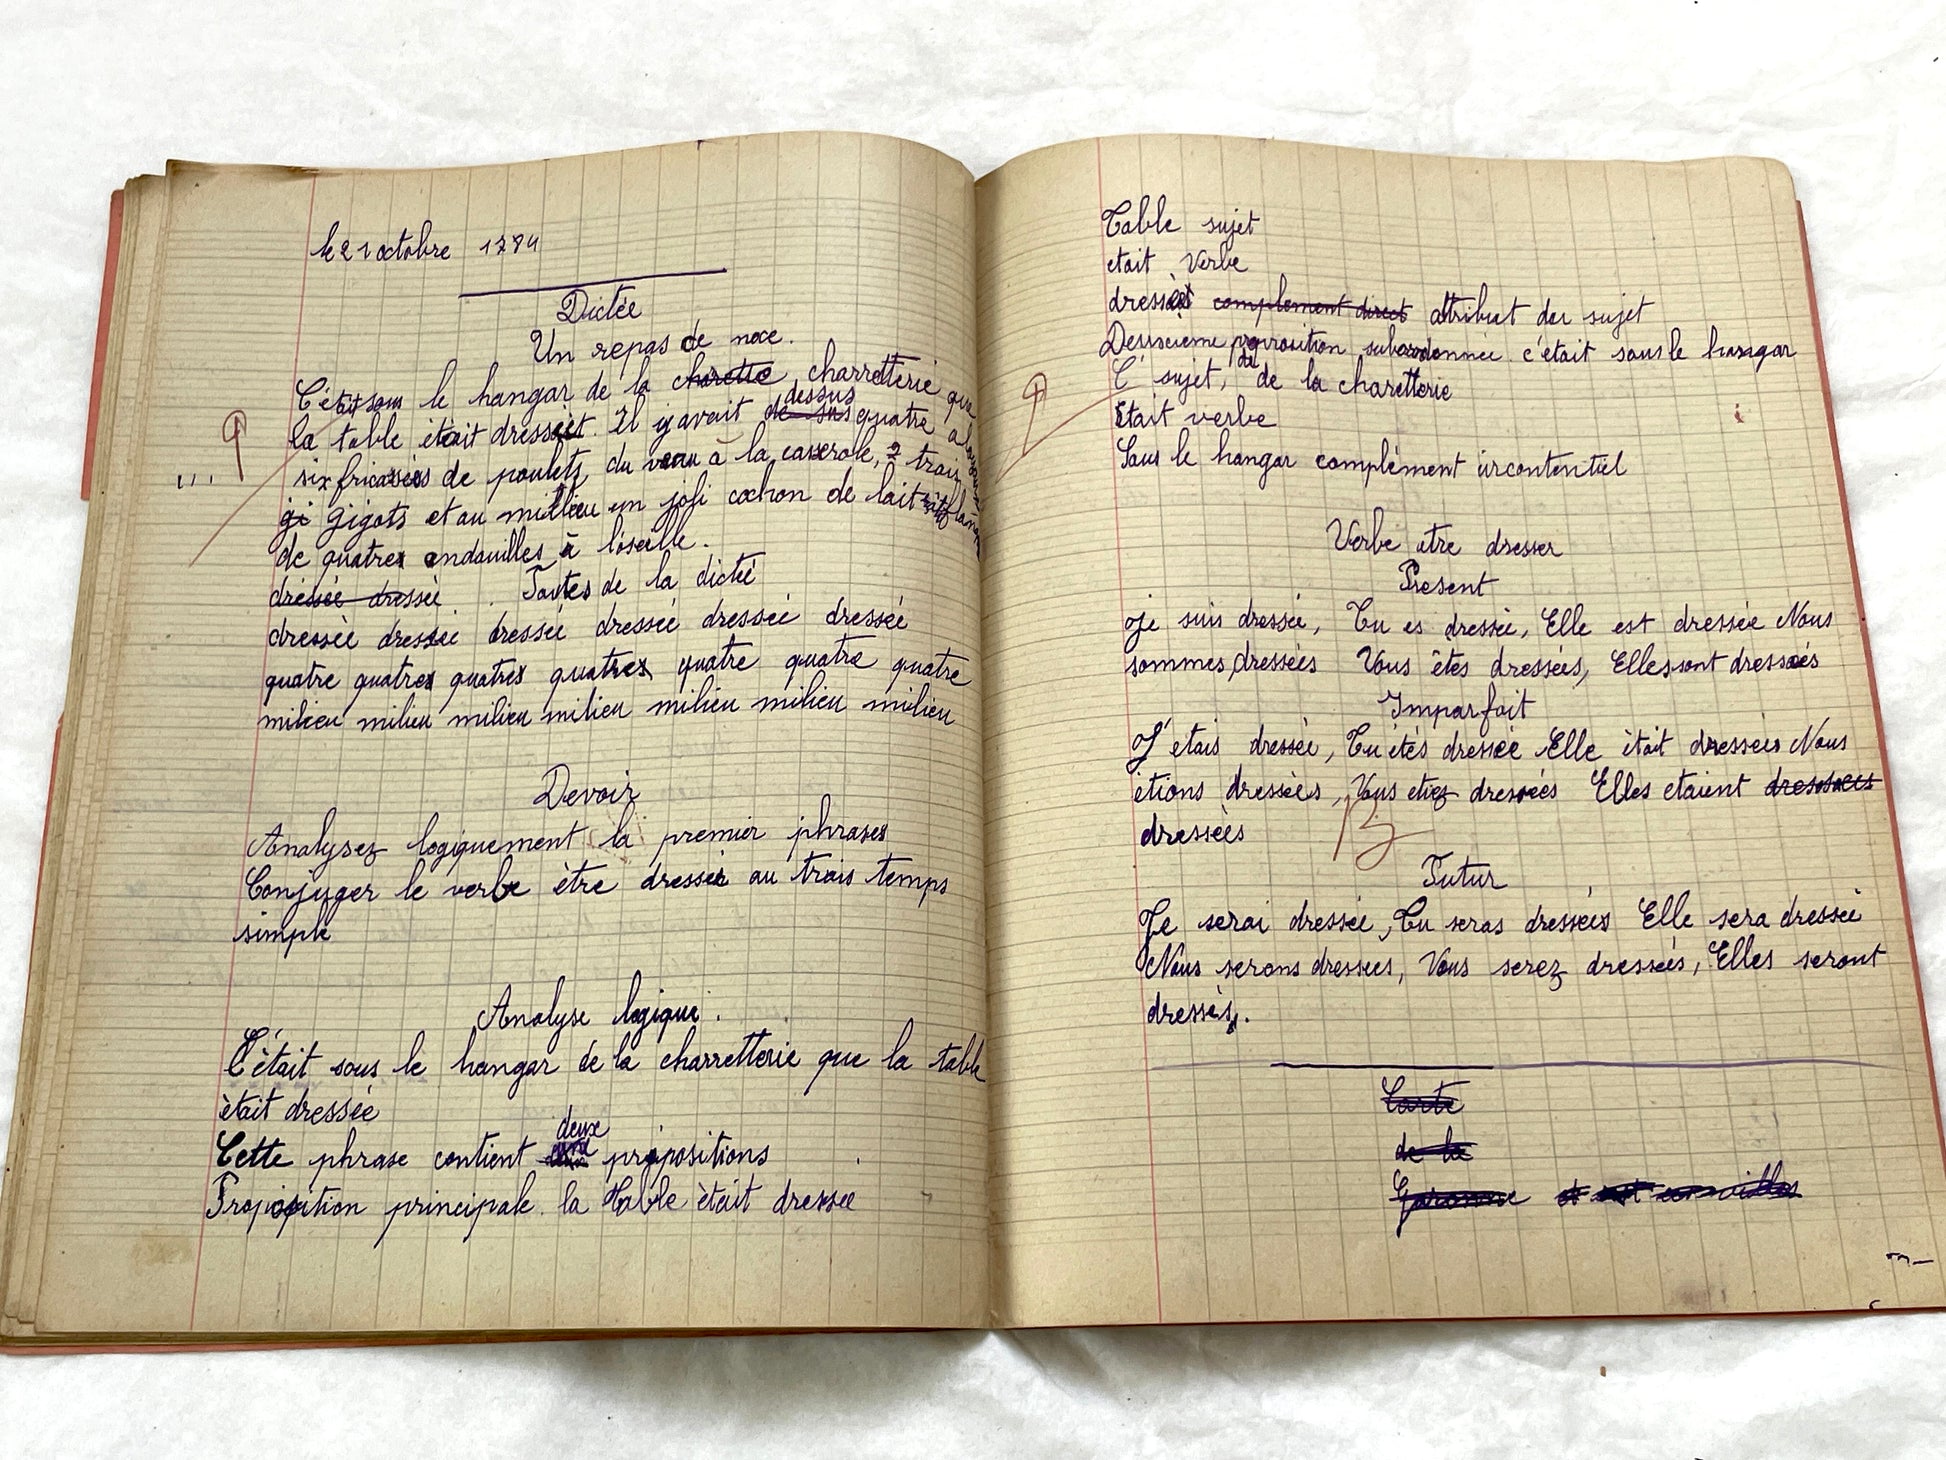 le 21 octobre 1784
Dictée
Un repas de noce.
C'était sous le hangar de la charette charretterie que
la table était dressée. Il y avait de sus dessus quatre
six fricassées de poulets, du veau à la casserole, 2 trois
gi gigots et au milieu un joli cochon de lait
de quatres andouilles à l'oseille.
dréssée dressée . Fautes de la dictée
dressée dressée dressée dressée dressée dressée
quatre quatres quatres quatres quatre quatre quatre
milieu milieu milieu milieu milieu milieu milieu
Devoir
Analysez logiquement la premier phrases
Conjuger le verbe être dressée au trois temps
simple
Analyse logique.
C'était sous le hangar de la charretterie que la table
était dressée
Cette phrase contient deux propositions
Proposition principale. la table était dressée
Table sujet
etait verbe
dressée complement direct attribut du sujet
Deuxieme proposition subordonnée c'était sous le hangar
C' sujet, de la charetterie
Etait verbe
Sous le hangar complèment circontentiel
Verbe etre dresser
Present
Je suis dressée, Tu es dressée, Elle est dressée Nous
sommes dressées Vous êtes dressées, Elles sont dressées
Imparfait
J'etais dressée, Tu étés dressée Elle était dressées Nous
étions dressées, Vous etiez dressées Elles etaient dressées
dressées
Futur
Je serai dressée, Tu seras dressées Elle sera dressée
Nous serons dressees, Vous serez dressées, Elles seront
dressés.
Carte
de la
Garonne et